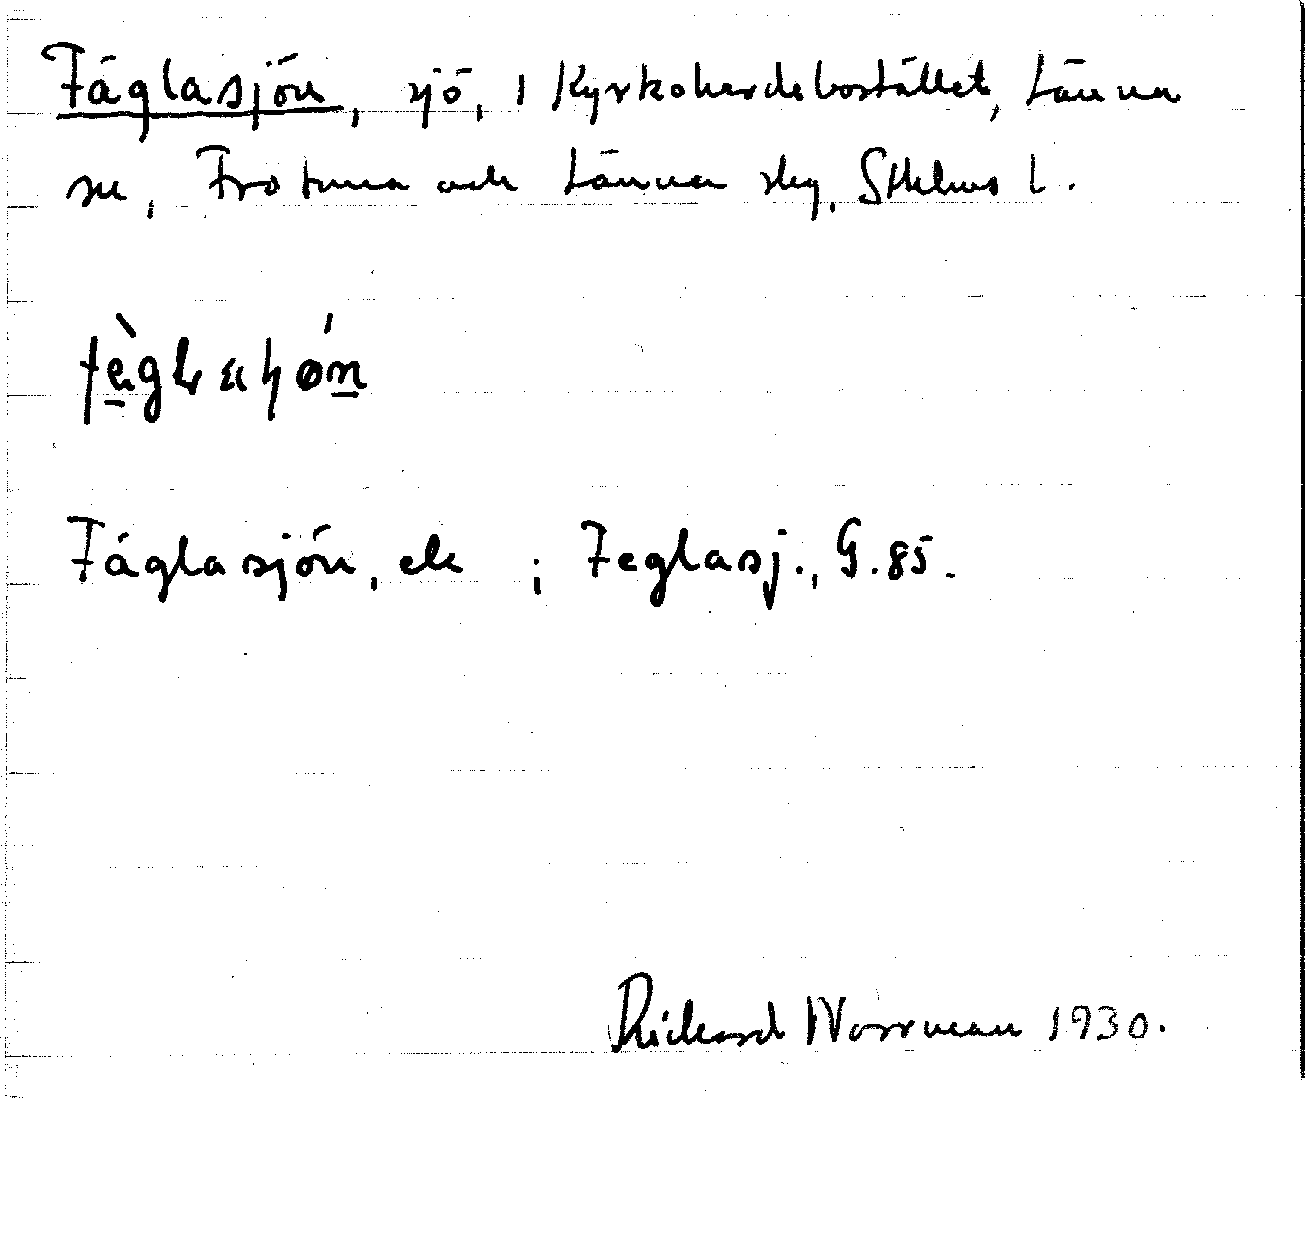 Fäglasjön, sjö, i Kyrkoherdebostället, Länna
sn, Frötuna och Länna skg, Sthlms l.
Fäglasjön, ek ; Feglasj., G.85.
Rickard Norrman 1930.